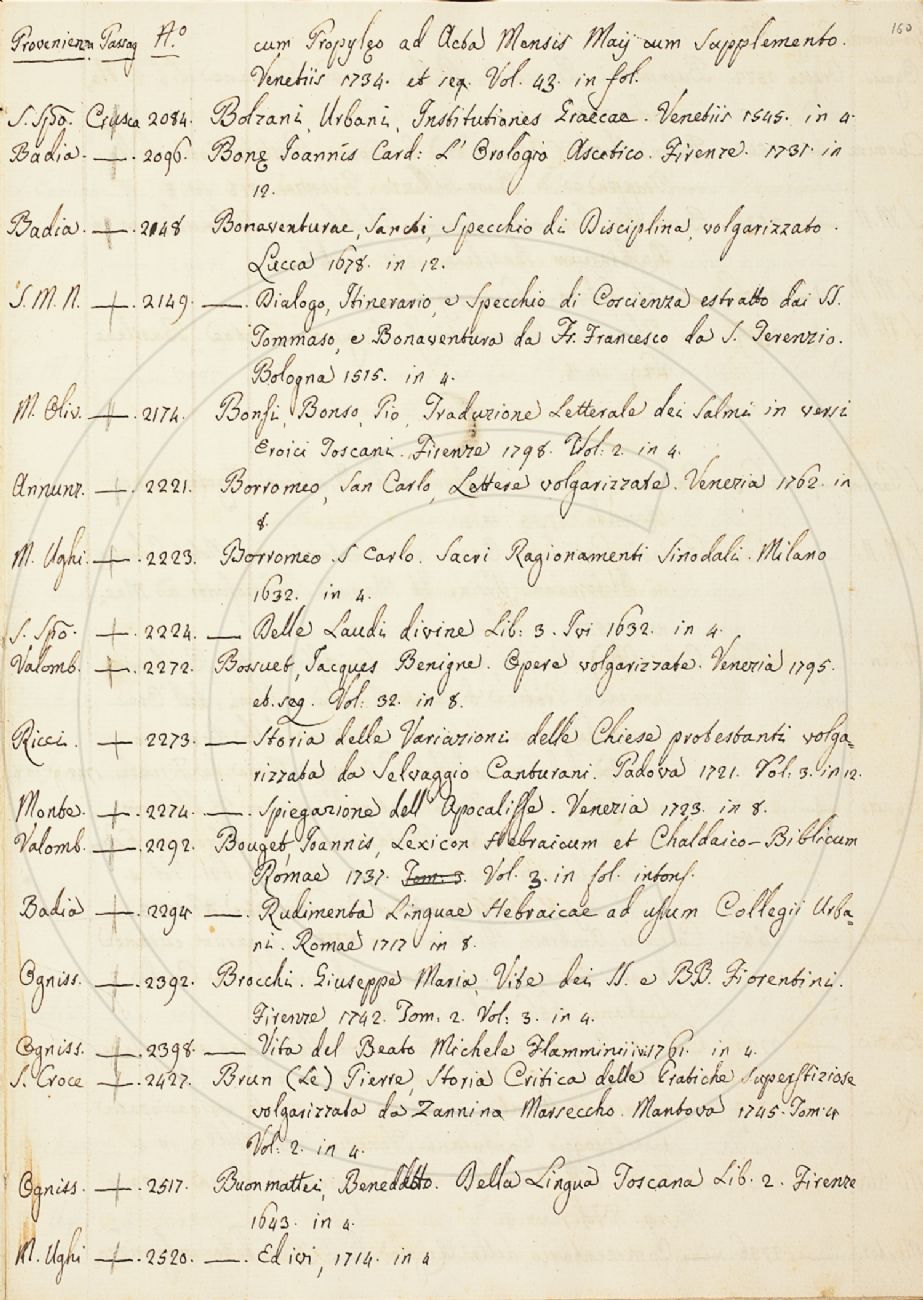 160
Provenienza Passag A.º cum Propylęo ad Acta Mensis Maij cum supplemento.
Venetiis 1734. et seq. Vol. 43. in fol.
S. Spõ. Crusca 2084. Bolzani, Urbani, Institutiones Graecae. Venetiis 1545. in 4.
Badia. —. 2096. Bonę Joannis Card: L' Orologio Ascetico. Firenze. 1731. in
12.
Badia. —. 2148 Bonaventurae, Sancti, Specchio di Disciplina, volgarizzato.
Lucca 1678. in 12.
S. M. N. — . 2149. —. Dialogo, Itinerario, e Specchio di Coscienza estratto dai SS.
Tommaso, e Bonaventura da Fr. Francesco da S. Terenzio.
Bologna 1515. in 4.
M. Oliv. —. 2174. Bonsi, Bonso, Pio, Traduzione Letterale dei Salmi in versi
Eroici Toscani. Firenze 1798. Vol: 2. in 4.
Annunz. —. 2221. Borromeo, San Carlo, Lettere volgarizzate. Venezia 1762. in
8.
M. Ughi. —. 2223. Borromeo. S Carlo. Sacri Ragionamenti Sinodali. Milano
1632. in 4.
S. Spõ. —. 2224. — Delle Laudi divine Lib: 3. Ivi 1632. in 4.
Valomb. —. 2272. Bossuet, Jacques Benigne. Opere volgarizzate. Venezia 1795.
et. seq. Vol: 32. in 8.
Ricci. — 2273. — Storia delle Variazioni delle Chiese protestanti volga=
rizzata da Selvaggio Canturani. Padova 1721. Vol: 3. in 12.
Monte. —. 2274. —. Spiegazione dell' Apocalisse. Venezia 1723. in 8.
Valomb. —. 2292. Bouget, Joannis, Lexicon Hebraicum et Chaldaico-Biblicum
Romae 1737. Tom: 3. Vol. 3. in fol. intons.
Badia —. 2294. —. Rudimenta Linguae Hebraicae ad usum Collegii Urba=
ni. Romae 1717 in 8.
Ogniss. —. 2392. Brocchi. Giuseppe Maria, Vite dei SS. e BB. Fiorentini.
Firenze 1742. Tom: 2. Vol: 3. in 4.
Ogniss. —. 2398. — Vita del Beato Michele Flammini ivi 1761. in 4.
S. Croce — . 2427. Brun (Le) Pierre, Storia Critica delle Pratiche superstiziose
volgarizzata da Zannina Marseccho. Mantova 1745. Tom: 4
Vol: 2. in 4.
Ogniss. —. 2517. Buonmattei, Benedetto. Della Lingua Toscana Lib. 2. Firenze
1643. in 4.
M. Ughi —. 2520. —. Ed ivi, 1714. in 4